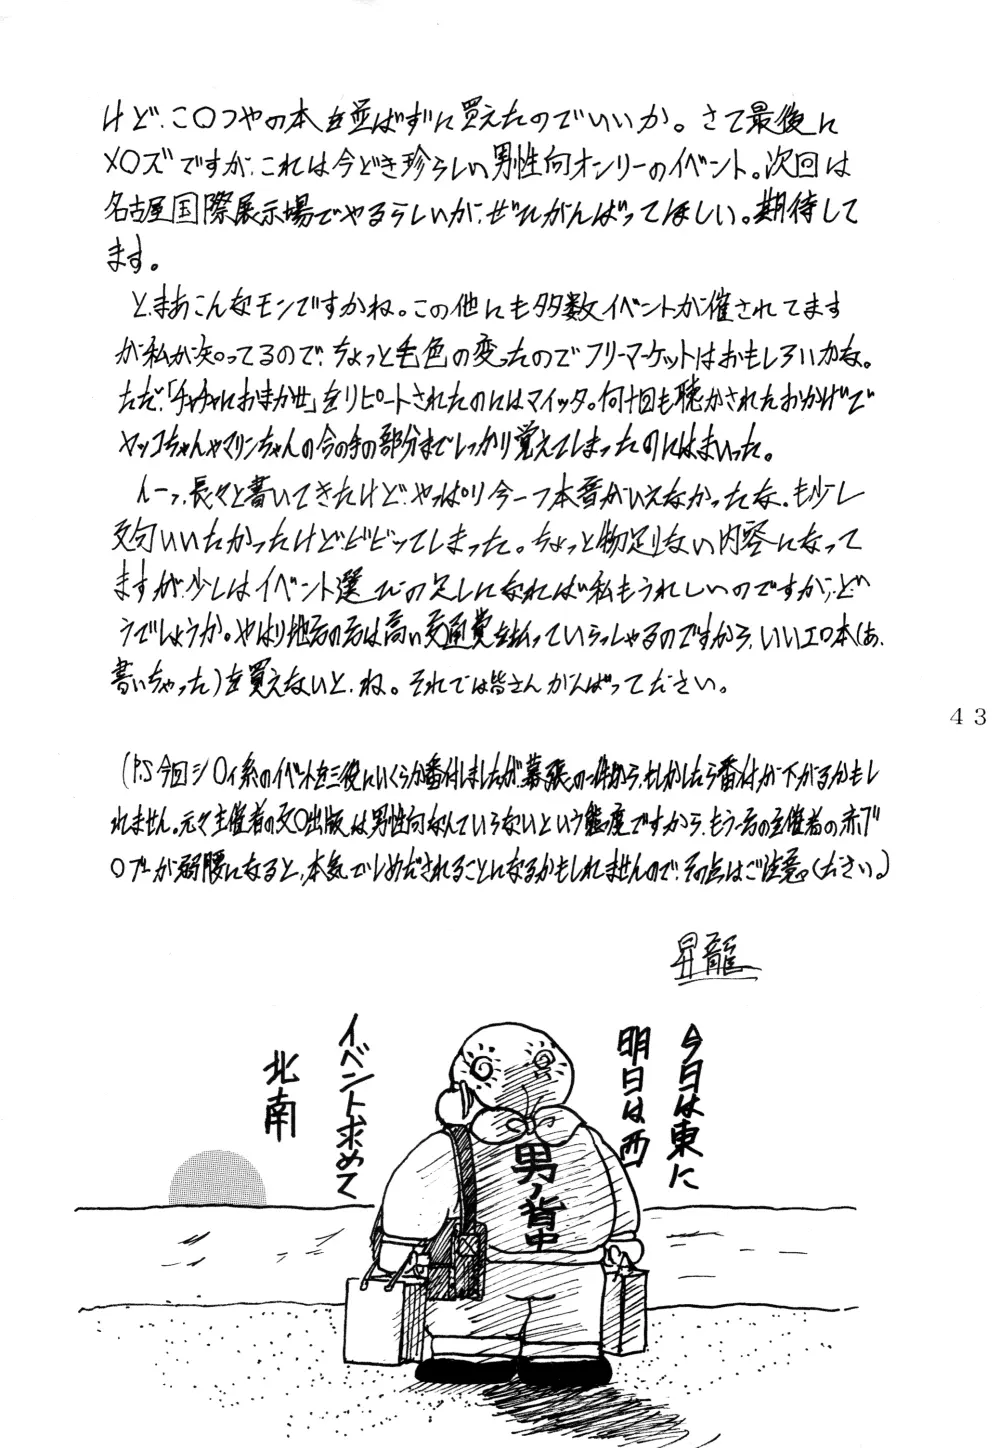 けど、こ〇つやの本を並ばずに買えたのでいいか。さて最後に
メ〇ズですが、これは今どき珍らしい男性向オンリーのイベント。次回は
名古屋国際展示場でやるらしいが、ぜひがんばってほしい。期待して
ます。
と、まあこんなモンですかね。この他にも多数イベントが催されてます
が私が知ってるので、ちょっと毛色の変ったのでフリーマーケットはおもしろいかな。
ただ、「チャチャにおまかせ」をリピートされたのにはマイッタ。何十回も聴かされたおかげで
ヤッコちゃんやマリンちゃんの合の手の部分までしっかり覚えてしまったのにはまいった。
んーっ、長々と書いてきたけど、やっぱり今一つ本音がいえなかったな。も少し
文句いいたかったけどビビッてしまった。ちょっと物足りない内容になって
ますが、少しはイベント選びの足しになれば私もうれしいのですが、ど
うでしょうか。やはり地方の方は高い交通費を払っていらっしゃるのですから、いいエロ本(あ、
書いちゃった)を買えないと、ね。それでは皆さん がんばってください。
(P.S 今回シ〇ィ系のイベントを三役にいくらか番付しましたが、幕張の一件から、もしかしたら番付が下がるかもし
れません。元々主催者の文〇出版は男性向なんていらないという態度ですから、もう一方の主催者の赤ブ
〇ブーが弱腰になると、本気でしめだされることになるかもしれませんので、その点はご注意。ください。)
43
昇龍
今日は東に
明日は西
イベント求めて
北南
男ノ背中